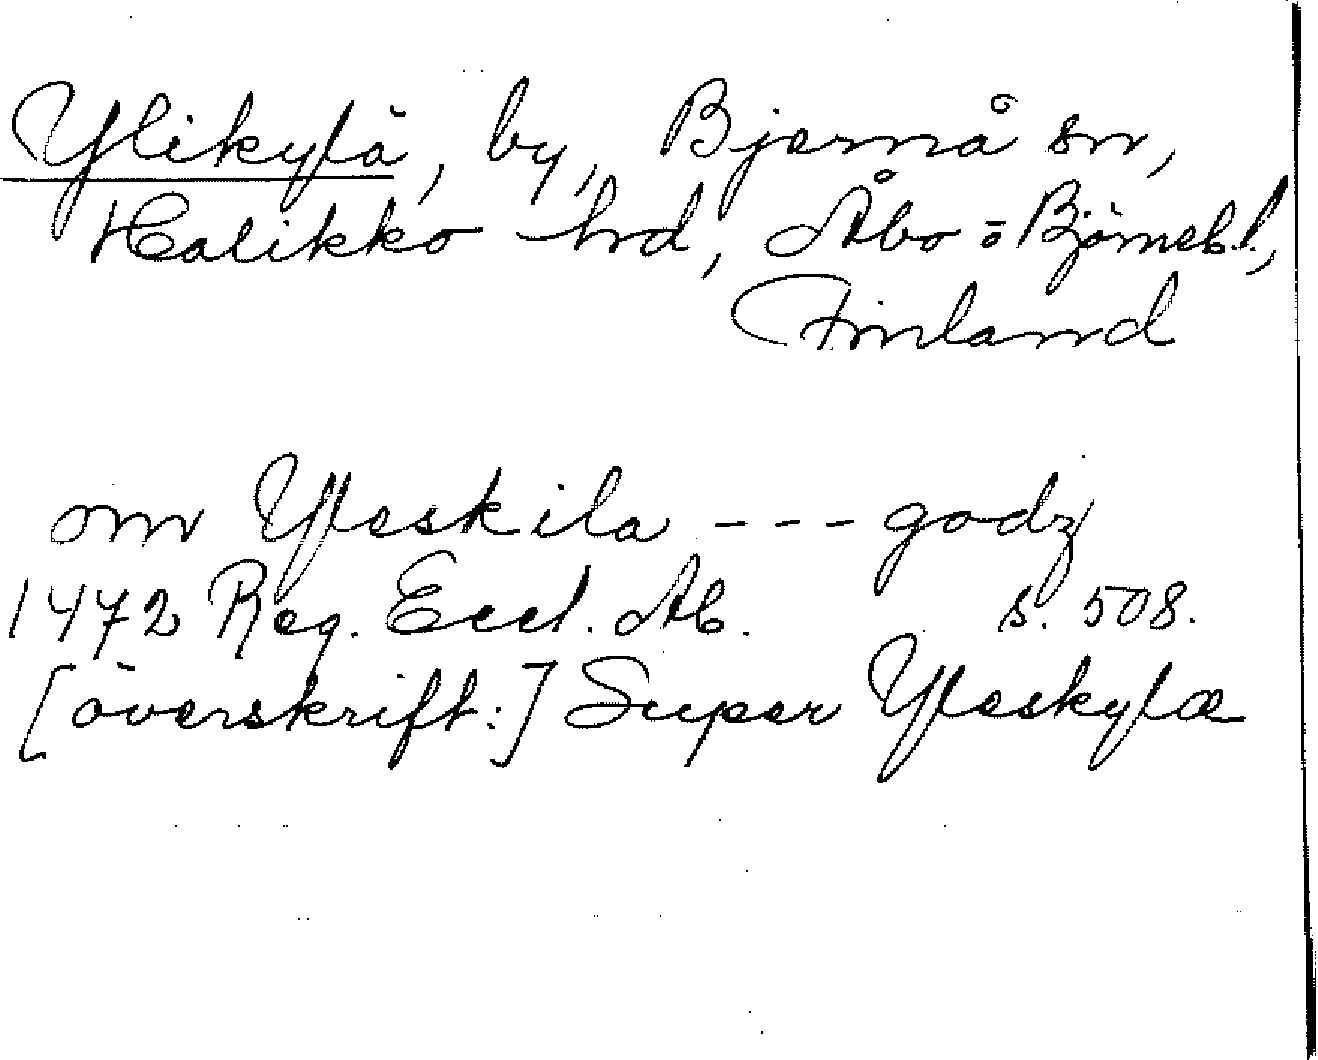 Ylikylä, by, Bjernå sn,
Halikko hd, Åbo o Björneb. l.,
Finland
om Yleskila --- godz
1472 Reg. Eccl. Ab. s. 508.
[överskrift:] Super Yleskylæ